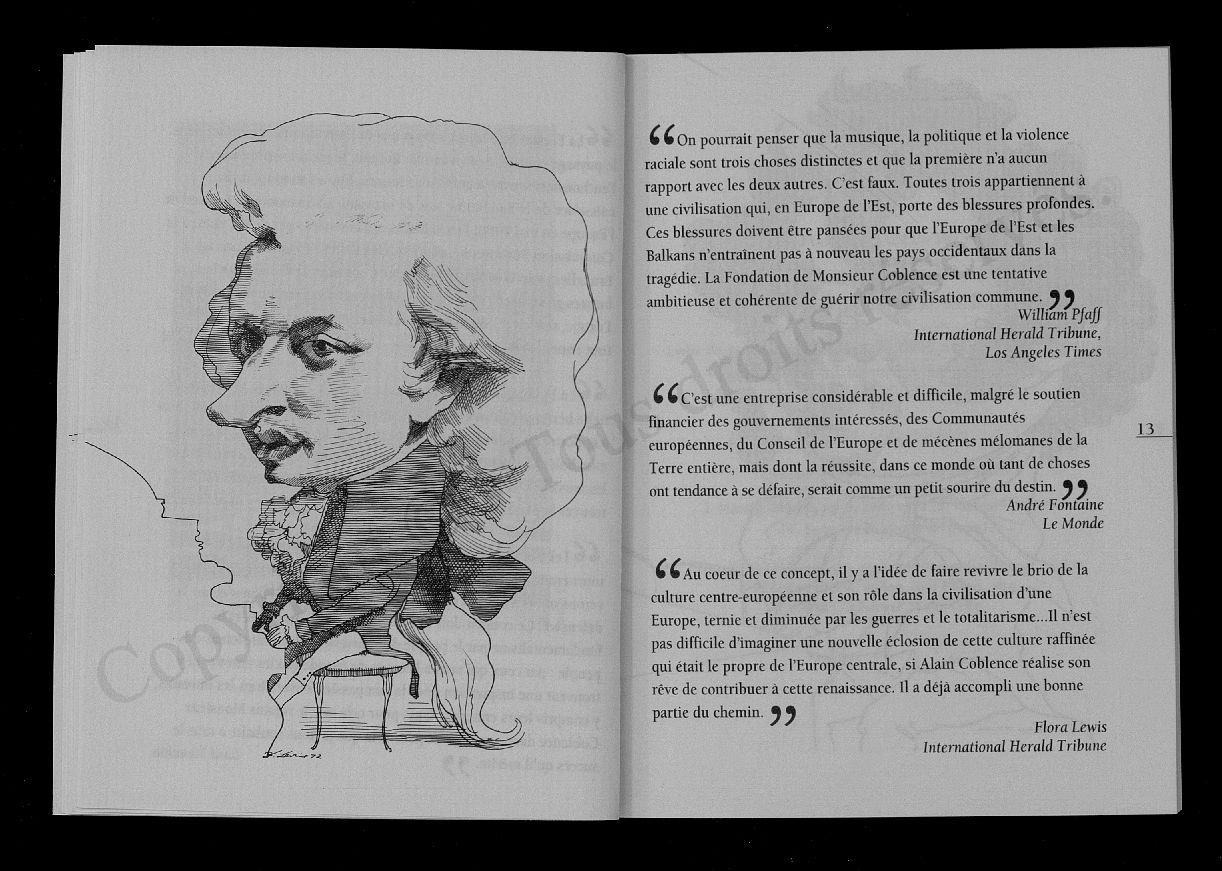 “On pourrait penser que la musique, la politique et la violence
raciale sont trois choses distinctes et que la première n'a aucun
rapport avec les deux autres. C'est faux. Toutes trois appartiennent à
une civilisation qui, en Europe de l'Est, porte des blessures profondes.
Ces blessures doivent être pansées pour que l'Europe de l'Est et les
Balkans n'entraînent pas à nouveau les pays occidentaux dans la
tragédie. La Fondation de Monsieur Coblence est une tentative
ambitieuse et cohérente de guérir notre civilisation commune. ”
William Pfaff
International Herald Tribune,
Los Angeles Times
“C'est une entreprise considérable et difficile, malgré le soutien
financier des gouvernements intéressés, des Communautés
européennes, du Conseil de l'Europe et de mécènes mélomanes de la
Terre entière, mais dont la réussite, dans ce monde où tant de choses
ont tendance à se défaire, serait comme un petit sourire du destin. ”
André Fontaine
Le Monde
13
“Au coeur de ce concept, il y a l'idée de faire revivre le brio de la
culture centre-européenne et son rôle dans la civilisation d'une
Europe, ternie et diminuée par les guerres et le totalitarisme...Il n'est
pas difficile d'imaginer une nouvelle éclosion de cette culture raffinée
qui était le propre de l'Europe centrale, si Alain Coblence réalise son
rêve de contribuer à cette renaissance. Il a déjà accompli une bonne
partie du chemin. ”
Flora Lewis
International Herald Tribune
Copy
Tous droits